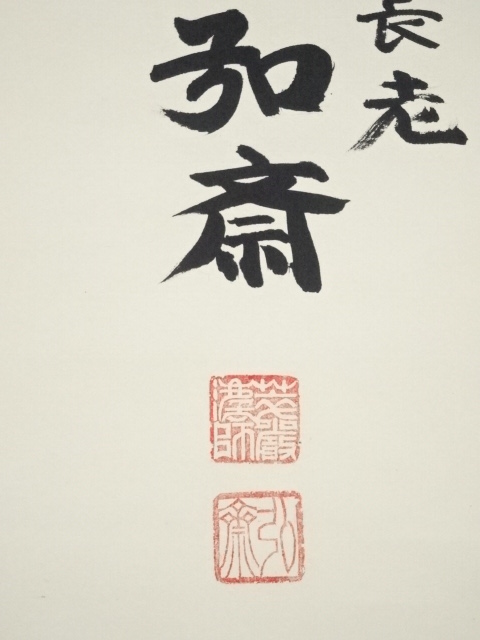 長老
弘斎
弘齋